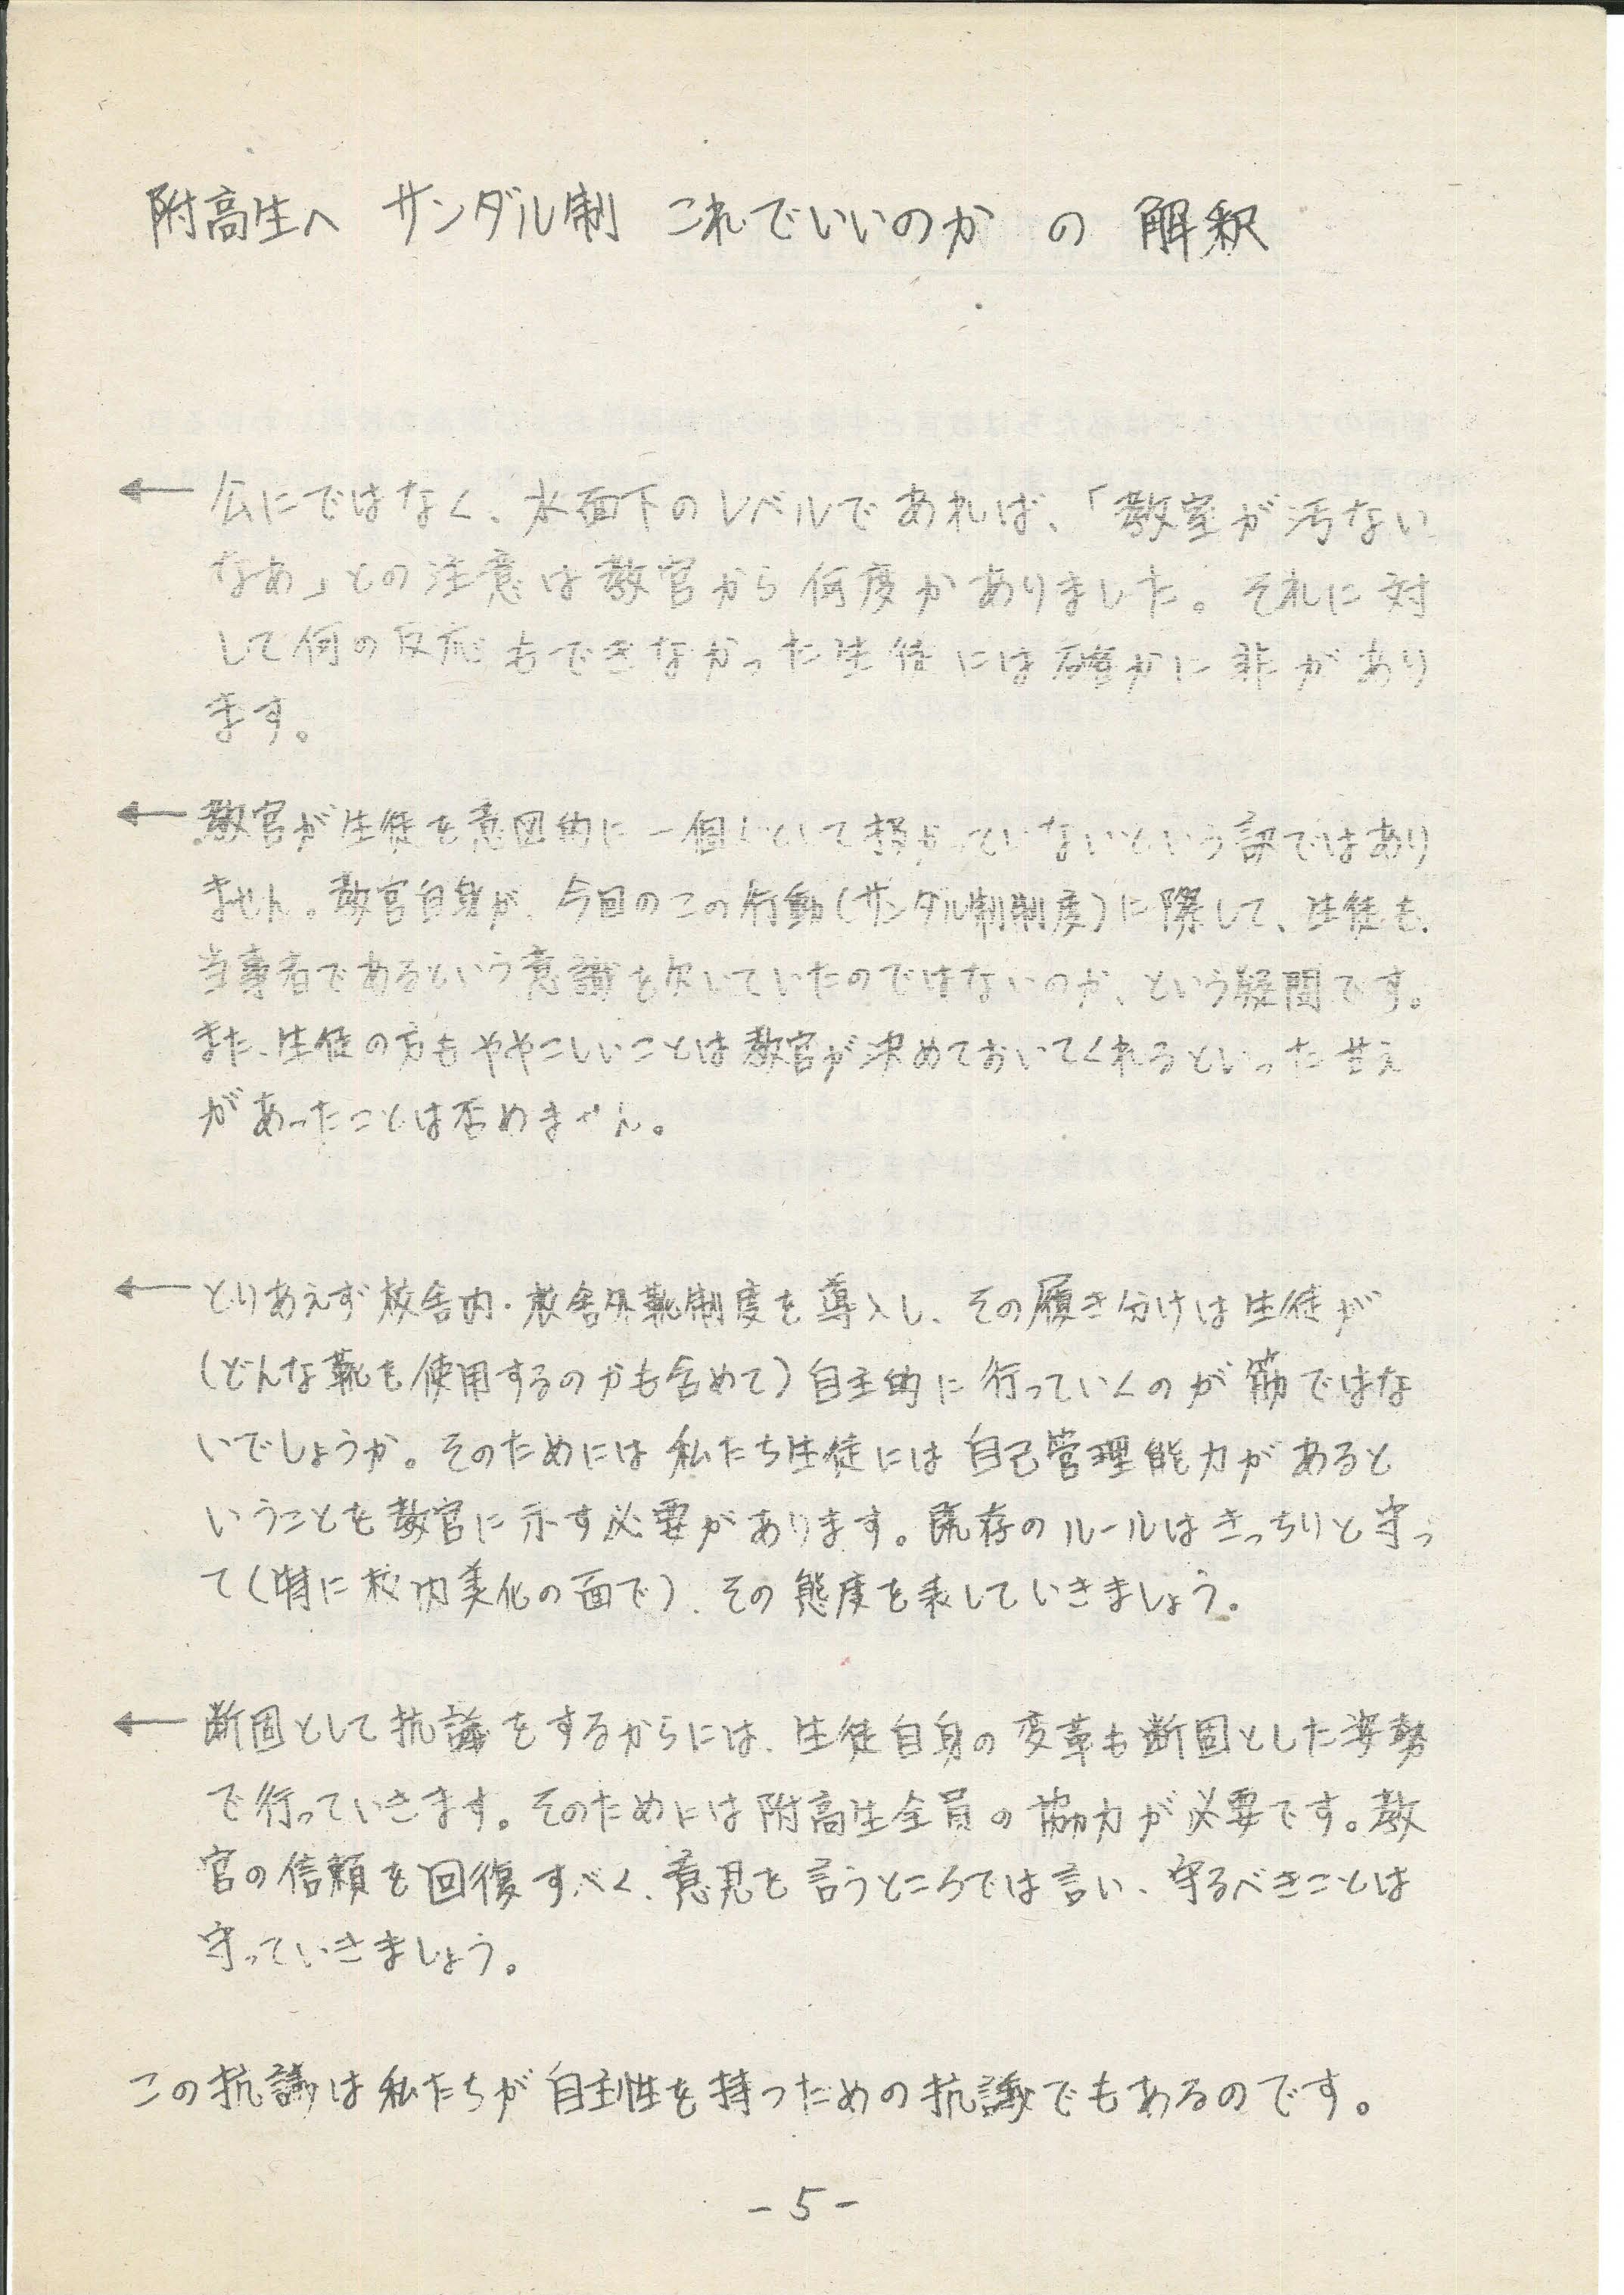 附高生へ サンダル制 これでいいのか の 解釈
← 公にではなく、水面下のレベルであれば、「教室が汚ない
なあ」との注意は教官から何度かありました。それに対
して何の反応もできなかった生徒には確かに非があり
ます。
← 教官が生徒を意図的に一個人として扱かっていないという訳ではあり
ません。教官自身が、今回のこの行動(サンダル制制度)に際して、生徒も、
当事者であるという意識を欠いていたのではないのか、という疑問です。
また、生徒の方もややこしいことは教官が決めておいてくれるといった甘え
があったことは否めません。
← とりあえず校舎内・校舎外靴制度を導入し、その履き分けは生徒が
(どんな靴を使用するのかも含めて)自主的に行っていくのが筋ではな
いでしょうか。そのためには私たち生徒には自己管理能力があると
いうことを教官に示す必要があります。既存のルールはきっちりと守っ
て(特に校内美化の面で)、その態度を表していきましょう。
← 断固として抗議をするからには、生徒自身の変革も断固とした姿勢
で行っていきます。そのためには附高生全員の協力が必要です。教
官の信頼を回復すべく、意見を言うところでは言い、守るべきことは
守っていきましょう。
この抗議は私たちが自主性を持つための抗議でもあるのです。
-5-